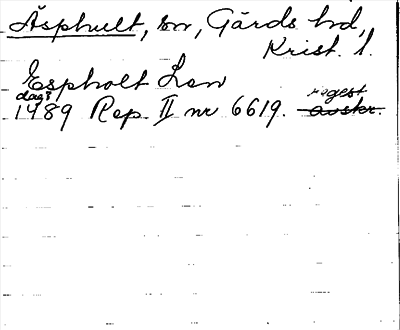 Äsphult, sn, Gärds hd,
Krist. l.
Espholt Len
dag?
1489 Rep. II nr 6619. regest
avskr.